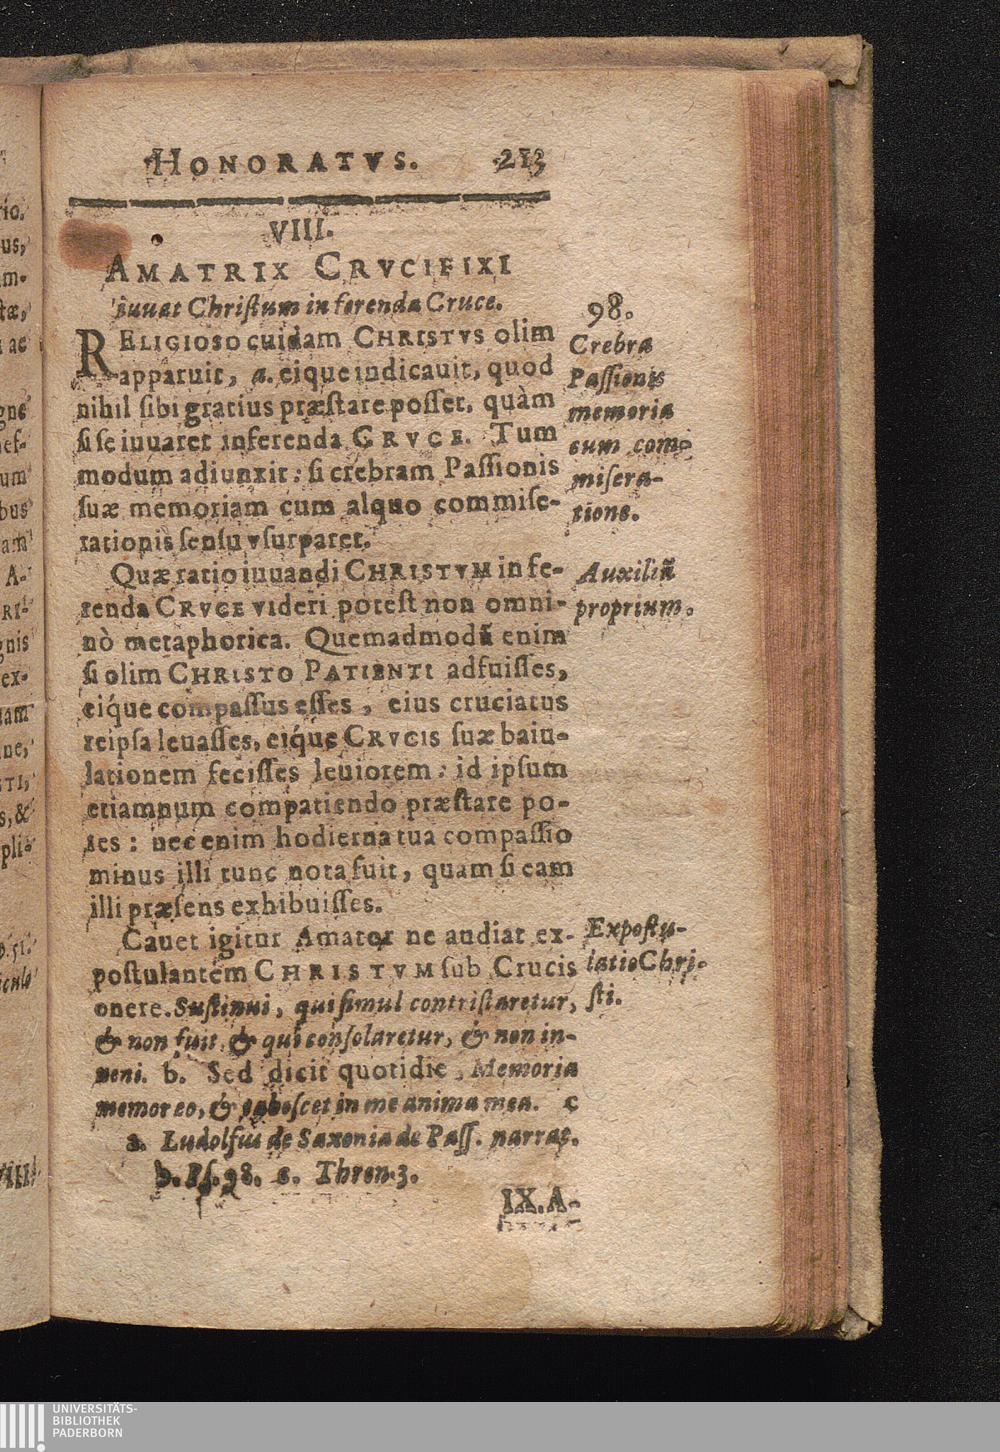 HONORATVS. 213
VIII.
AMATRIX CRVCIFIXI
iuuat Chriſtum in ferenda Cruce.
RELIGIOSO cuidam CHRISTVS olim
apparuit, a. eique indicauit, quod
nihil ſibi gratius præſtare poſſet, quàm
ſi ſe iuuaret inferenda CRVCE. Tum
modum adiunxit: ſi crebram Paſſionis
ſuæ memoriam cum alquo commiſe-
rationis ſenſu vſurparet.
98.
Crebra
Paſſionis
memoria
cum com-
miſera-
tione.
Quæ ratio iuuandi CHRISTVM in fe-
renda CRVCE videri poteſt non omni-
nò metaphorica. Quemadmodũ enim
ſi olim CHRISTO PATIENTI adfuiſſes,
eiq́ue compaſſus eſſes, eius cruciatus
reipſa leuaſſes, eiq́ue CRVCIS ſuæ baiu-
lationem feciſſes leuiorem: id ipſum
etiamnum compatiendo præſtare po-
tes: nec enim hodierna tua compaſſio
minus illi tunc nota fuit, quam ſi eam
illi præſens exhibuiſſes.
Auxiliũ
proprium.
Cauet igitur Amator ne audiat ex-
poſtulantem CHRISTVM ſub Crucis
onere. Suſtinui, qui ſimul contriſtaretur,
& non fuit, & qui conſolaretur, & non in-
ueni. b. Sed dicit quotidie, Memoria
memor ero, & tabeſcet in me anima mea. c
Expoſtu-
latio Chri-
ſti.
a. Ludolfus de Saxonia de Paſſ. narrat.
b. Pſ. 98. c. Thren. 3.
IX. A-
rio.
us,
am-
tæ,
ac
gne
ef-
um
bus
am
A-
RI-
gnis
ex-
ne,
STI,
s, &
pli-
VIII.
UNIVERSITÄTS-
BIBLIOTHEK
PADERBORN